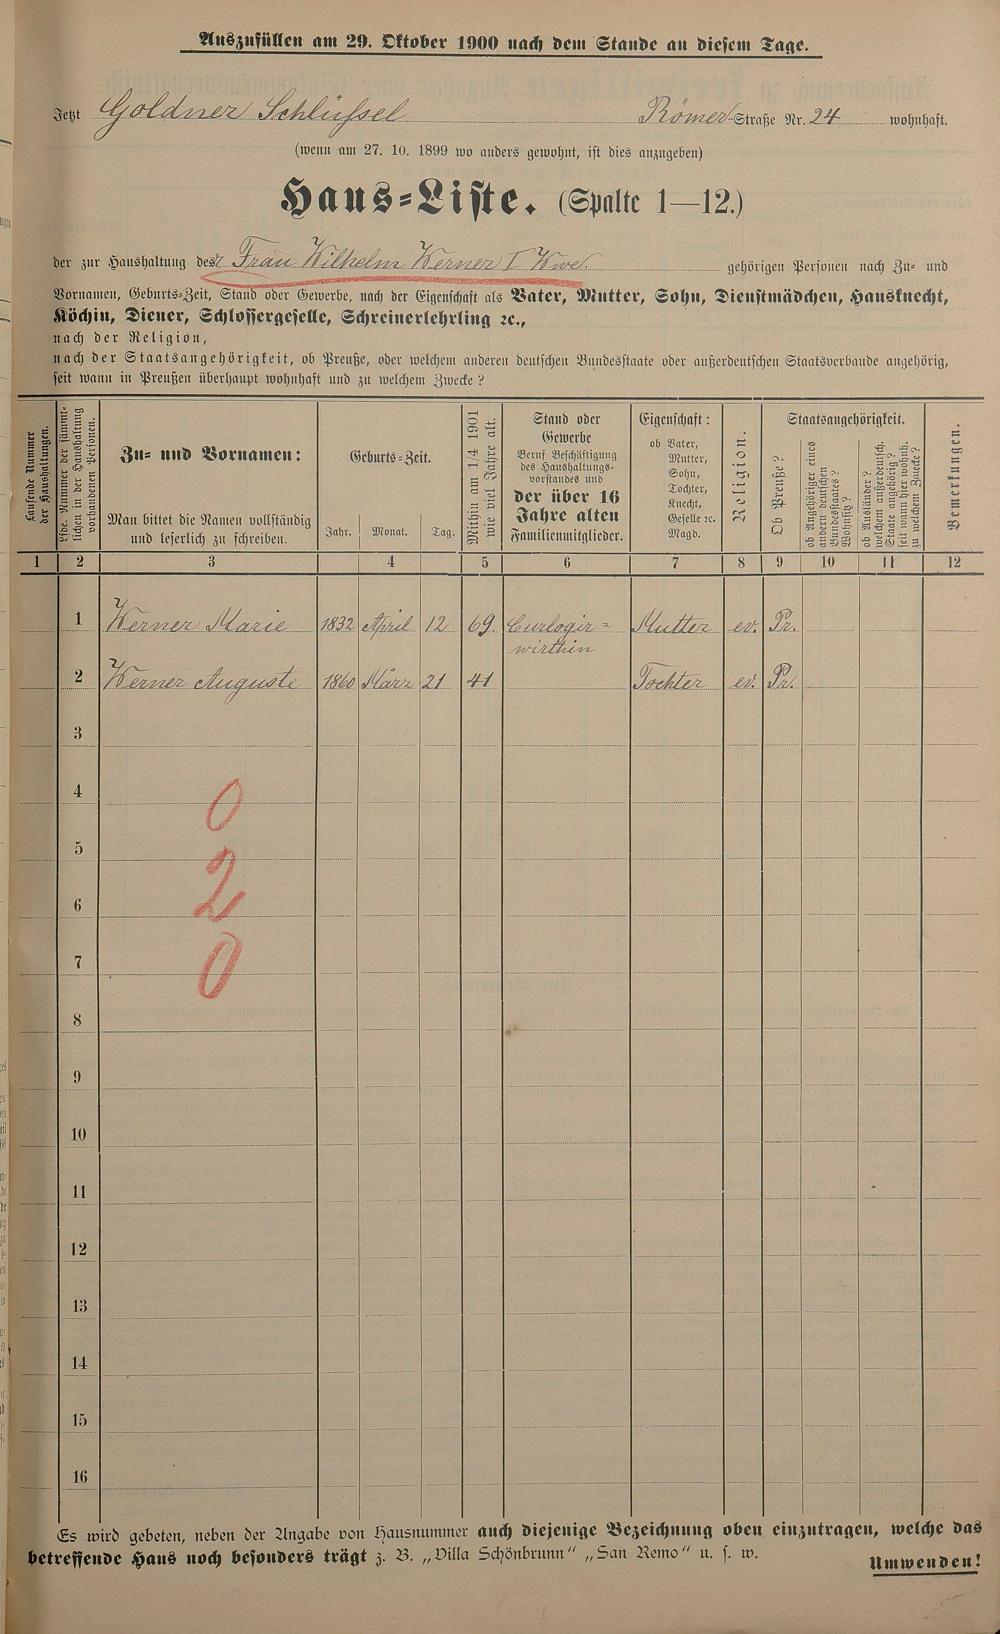 Auszufüllen am 29. Oktober 1900 nach dem Stande an diesem Tage.
Jetzt Goldner Schlüssel Römer-Straße Nr. 24 wohnhaft.
(wenn am 27. 10. 1899 wo anders gewohnt, ist dies anzugeben)
Haus-Liste. (Spalte 1—12.)
der zur Haushaltung der Frau Wilhelm Werner I Wwe. gehörigen Personen nach Zu- und
Vornamen, Geburts-Zeit, Stand oder Gewerbe, nach der Eigenschaft als Vater, Mutter, Sohn, Dienstmädchen, Hausknecht,
Köchin, Diener, Schlossergeselle, Schreinerlehrling ꝛc.,
nach der Religion,
nach der Staatsangehörigkeit, ob Preuße, oder welchem anderen deutschen Bundesstaate oder außerdeutschen Staatsverbande angehörig,
seit wann in Preußen überhaupt wohnhaft und zu welchem Zwecke?
Laufende Nummer
der Haushaltungen.
Lfde. Nummer der sämmt-
lichen in der Haushaltung
vorhandenen Personen.
Zu- und Vornamen:
Man bittet die Namen vollständig
und leserlich zu schreiben.
Geburts-Zeit.
Jahr. Monat. Tag.
Mithin am 1/4 1901
wie viel Jahre alt.
Stand oder
Gewerbe
Beruf Beschäftigung
des Haushaltungs-
vorstandes und
der über 16
Jahre alten
Familienmitglieder.
Eigenschaft:
ob Vater,
Mutter,
Sohn,
Tochter,
Knecht,
Geselle ꝛc.
Magd.
Religion.
Staatsangehörigkeit.
Ob Preuße?
ob Angehöriger eines
andern deutschen
Bundesstaates?
Wohnsitz?
ob Ausländer?
welchem außerdeutsch.
Staate angehörig?
seit wann hier wohnh.
zu welchem Zwecke?
Bemerkungen.
1 2 3 4 5 6 7 8 9 10 11 12
1 Werner Marie 1832 April 12 69. Curlogir- Mutter ev. Pr.
wirthin
2 Werner Auguste 1860 März 21 41 Tochter ev. Pr.
3
4
0
5
6
2
7
0
8
9
10
11
12
13
14
15
16
Es wird gebeten, neben der Angabe von Hausnummer auch diejenige Bezeichnung oben einzutragen, welche das
betreffende Haus noch besonders trägt z. B. „Villa Schönbrunn" „San Remo" u. s. w.
Umwenden!